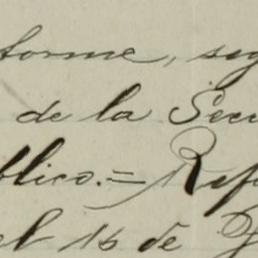 forme, seg
de la Secr
blico.= Rep
el 16 de